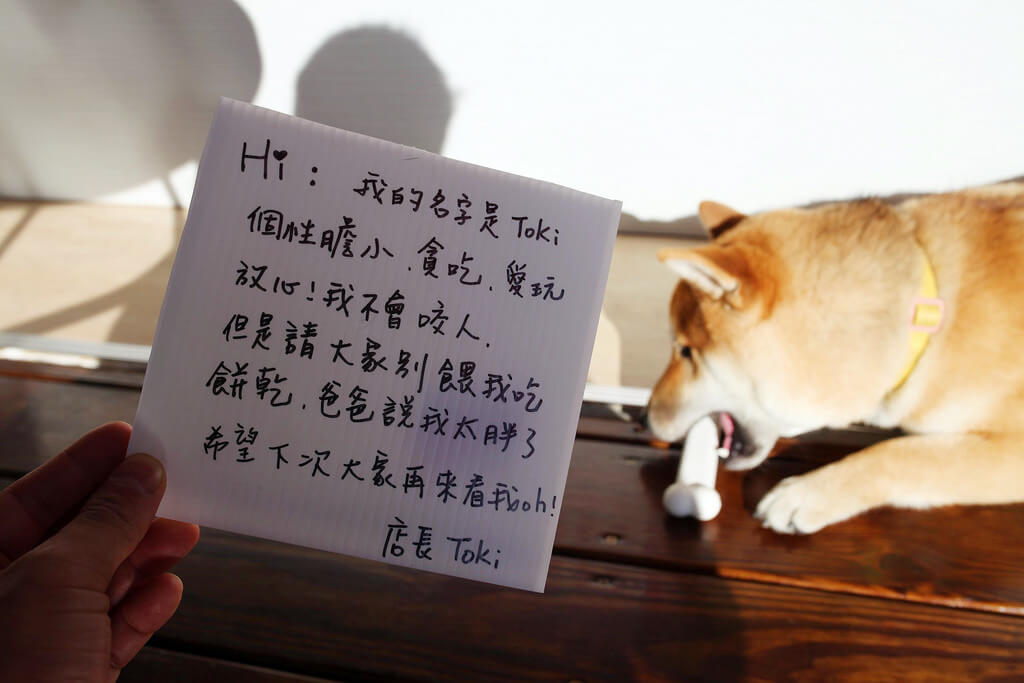 Hi： 我的名字是Toki
個性膽小、貪吃、愛玩
放心!我不會咬人.
但是請大家別餵我吃
餅乾.爸爸說我太胖了
希望下次大家再來看我oh!
店長 Toki